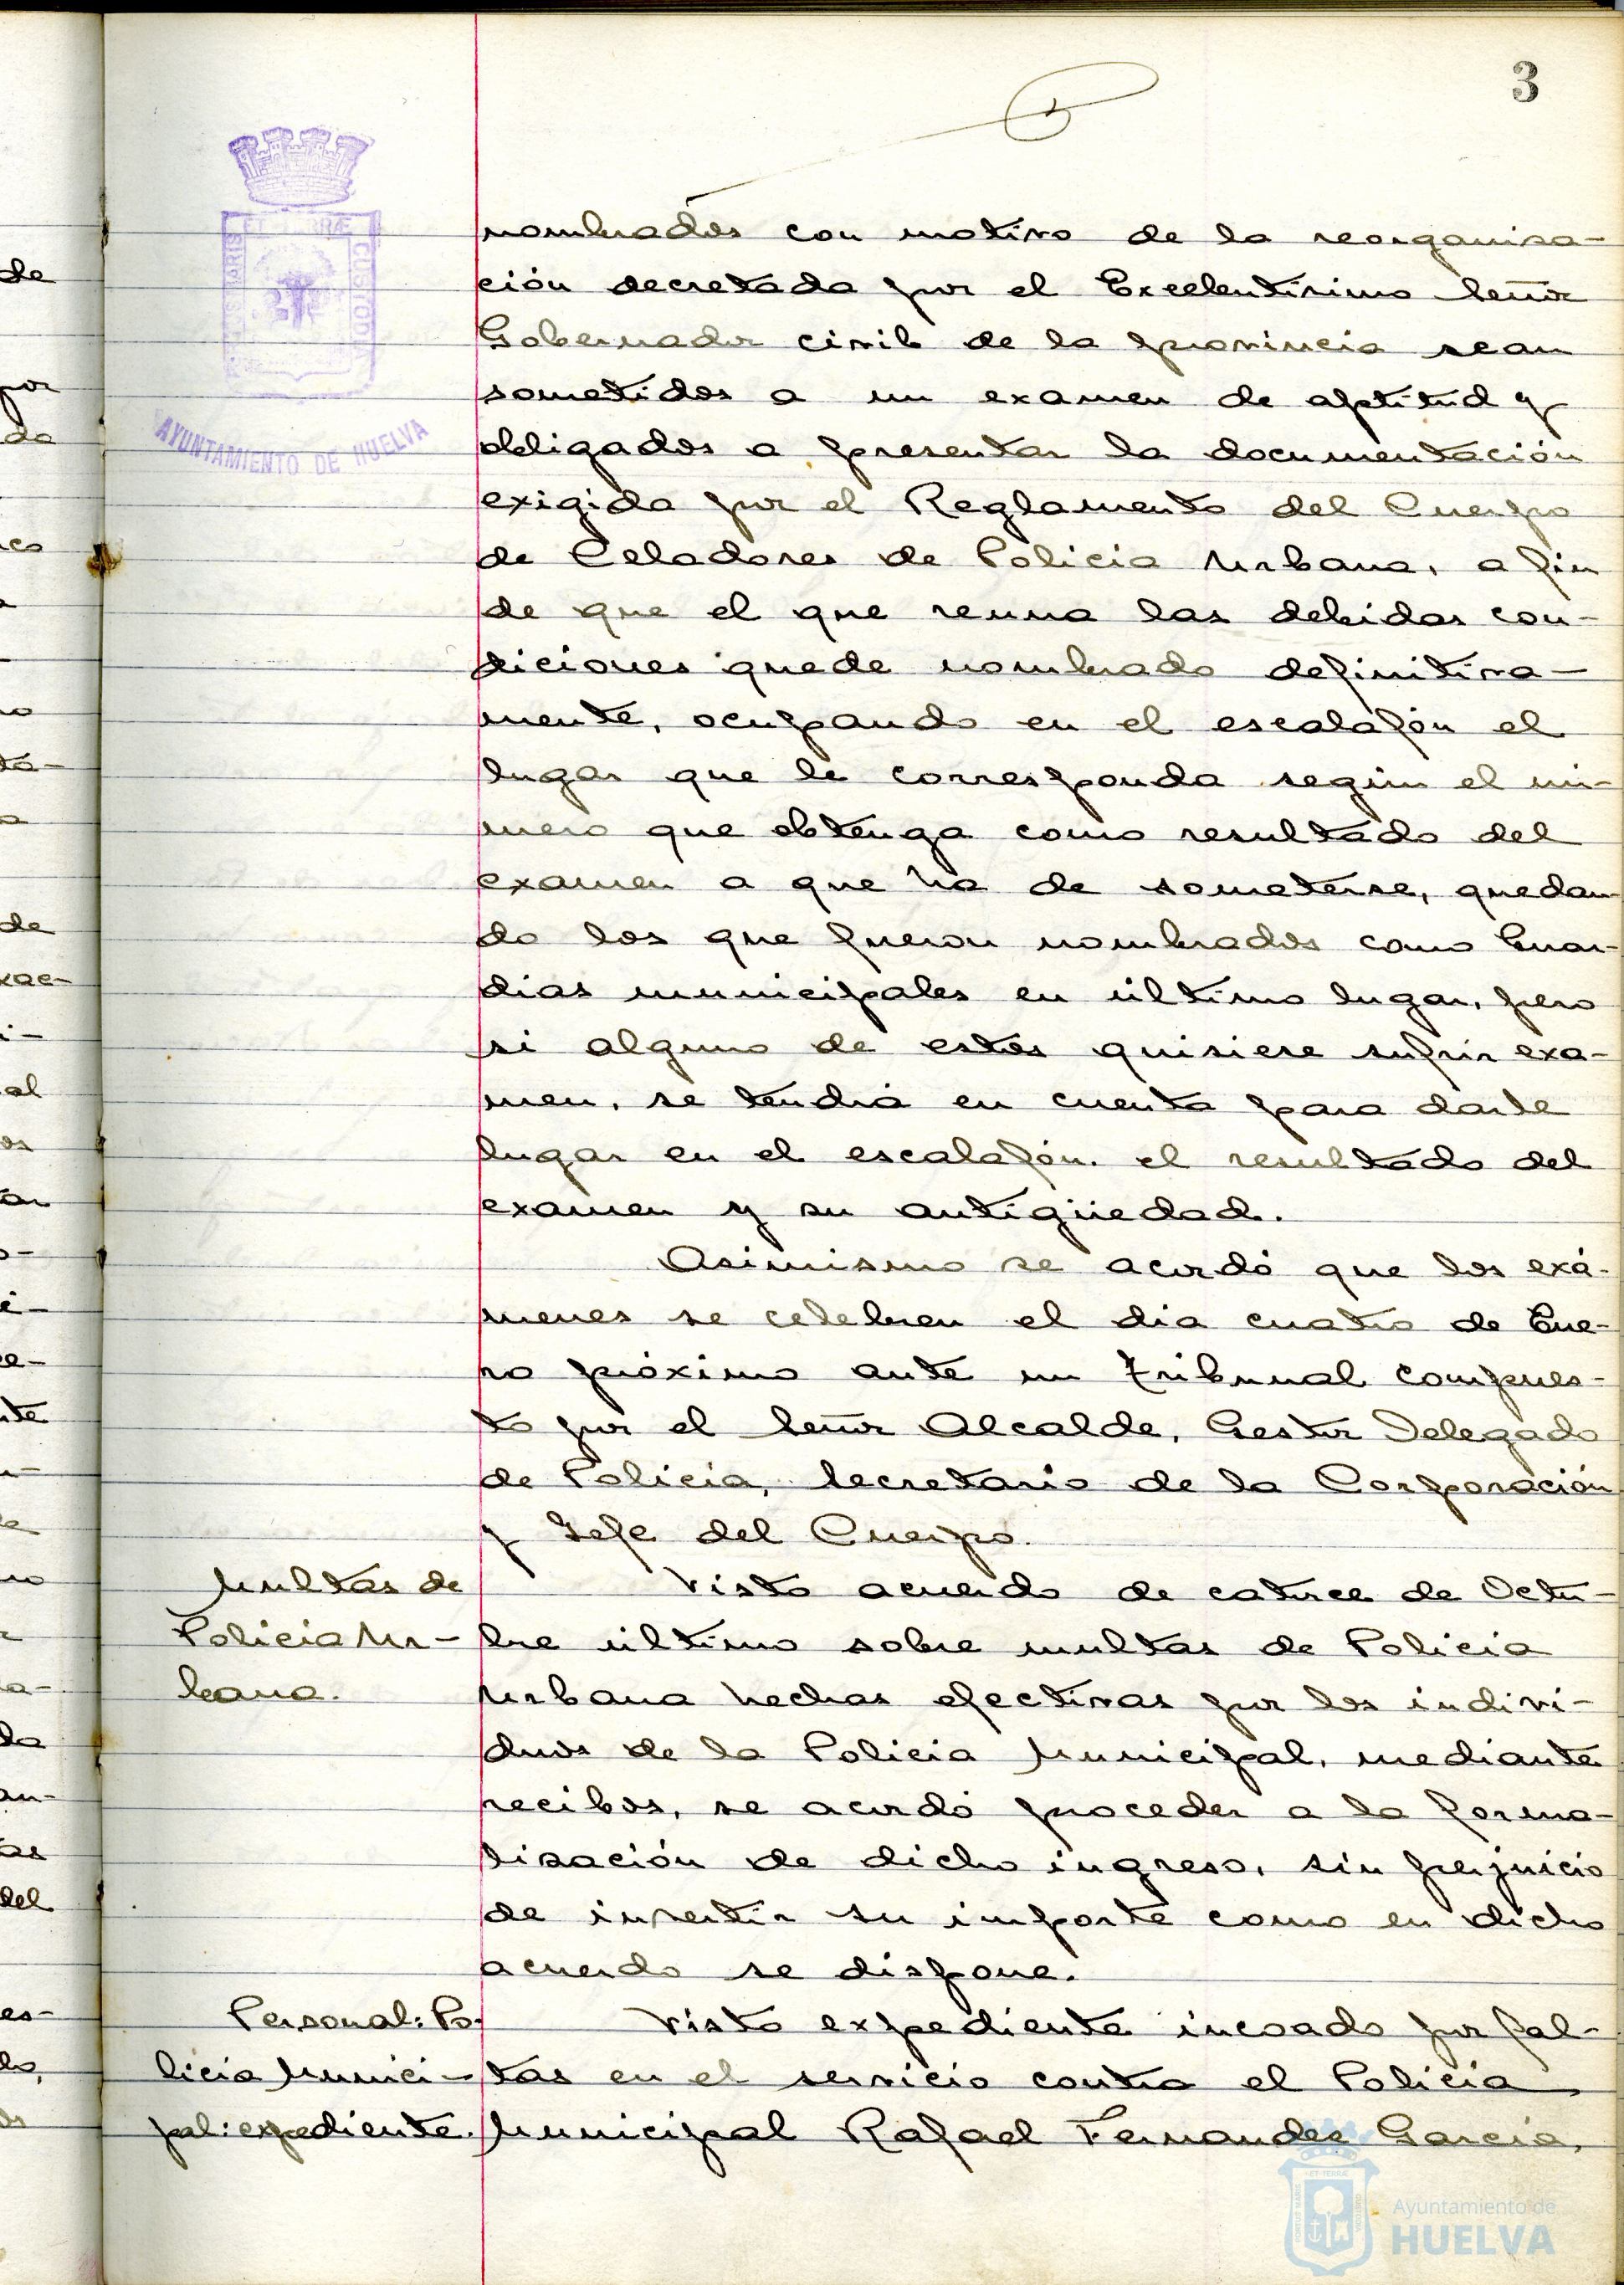 3
nombrados con motivo de la reorganiza-
ción decretada por el Excelentísimo Señor
Gobernador civil de la provincia sean
sometidos a un examen de aptitud y
obligados a presentar la documentación
exigida por el Reglamento del Cuerpo
de Celadores de Policia Urbana, a fin
de que el que reuna las debidas con-
diciones quede nombrado definitiva-
mente, ocupando en el escalafón el
lugar que le corresponda según el nú-
mero que obtenga como resultado del
examen a que ha de someterse, quedan-
do los que fueron nombrados como Guar-
dias municipales en último lugar, pero
si alguno de estos quisiere sufrir exa-
men, se tendrá en cuenta para darle
lugar en el escalafón el resultado del
examen y su antigüedad.
Asimismo se acordó que los exá-
menes se celebren el dia cuatro de Ene-
ro próximo ante un tribunal compues-
to por el Señor Alcalde, Gestor Delegado
de Policia, Secretario de la Corporación
y Jefe del Cuerpo.
Multas de
Policia Ur-
bana.
Visto acuerdo de catorce de Octu-
bre último sobre multas de Policia
Urbana hechas efectivas por los indivi-
duos de la Policia Municipal, mediante
recibos, se acordó proceder a la forma-
lización de dicho ingreso, sin perjuicio
de invertir su importe como en dicho
acuerdo se dispone.
Personal: Po-
licia Munici-
pal: expediente.
Visto expediente incoado por fal-
tas en el servicio contra el Policia
Municipal Rafael Fernandez Garcia,
ET TERRÆ
CUSTODIA
MARIS
AYUNTAMIENTO DE HUELVA
Ayuntamiento de
HUELVA